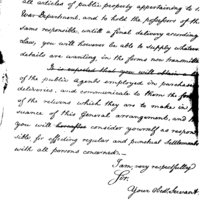 all articles of public property appertaining to
War Department, and to hold the possessors of the
same responsible, until a final delivery according
Law, you will however be able to supply whatever
details are wanting in the forms now transmitted
It is expected that you will obtain a
of the public Agents employed in purchases
deliveries, and communicate to them the forms
of the returns which they are to make in
suance of this General arrangement, and
you will hereafter consider yourself as respon
sible, for effecting regular and punctual Settlements
with all persons concerned.
I am, very respectfully
Sir,
Your Obed. Servant